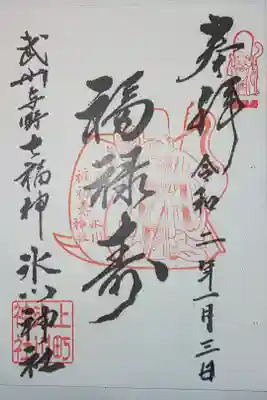 奉拝 令和二年一月三日
福禄寿
武州与野七福神 氷川神社
上町